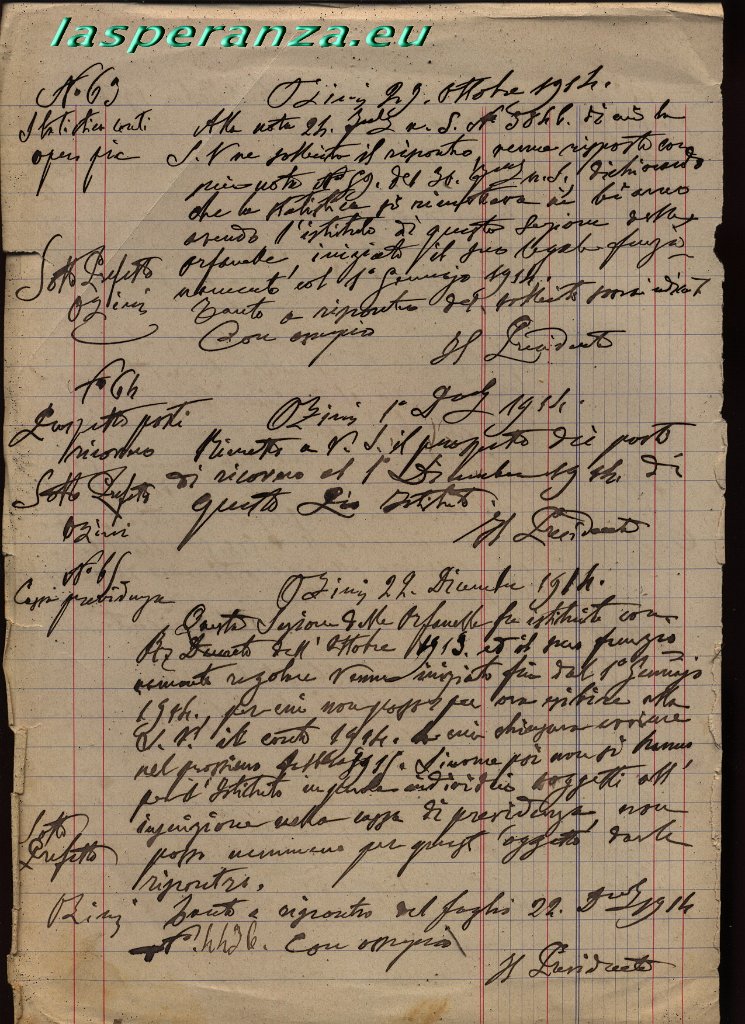 lasperanza.eu
N° 63
Ozieri 29. Ottobre 1914.
Statistica conti
opere pie
Alla nota 24. n. S. N° 3846. di cui la
S. V. ne sollecita il riscontro venne risposto con
mia nota N° 59. del 30. n. S. dichiarando
che la statistica si rimetterà
avendo l'istituto di questa Sezione delle
Orfanelle iniziato il suo legale funzio-
namento col 1° Gennajo 1914.
Sotto Prefetto
Ozieri
Tanto a riscontro del sollecito
Con ossequio
Il Presidente
N° 64
Ozieri 1° 1914.
Prospetto posti
ricovero
Rimetto a V. S. il prospetto dei posti
di ricovero al 1° Dicembre 1914. di
questo Pio Istituto.
Sotto Prefetto
Ozieri
Il Presidente
N° 65
Ozieri 22. Dicembre 1914.
Cassa previdenza
Questa Sezione delle Orfanelle fu istituita con
R. Decreto dell' Ottobre 1913. ed il suo funzio
namento regolare venne iniziato fin dal 1° Gennajo
1914., per cui non posso per ora esibire alla
S. V. il conto 1914. a mia chiusura inviare
nel prossimo 1915. Siccome poi non si hanno
per l'Istituto individui soggetti all'
inscrizione nella cassa di previdenza, non
posso nemmeno per quest'oggetto darle
riscontro.
Sotto
Prefetto
Ozieri
Tanto a riscontro del foglio 22. 1914
N. 4436. Con ossequio
Il Presidente